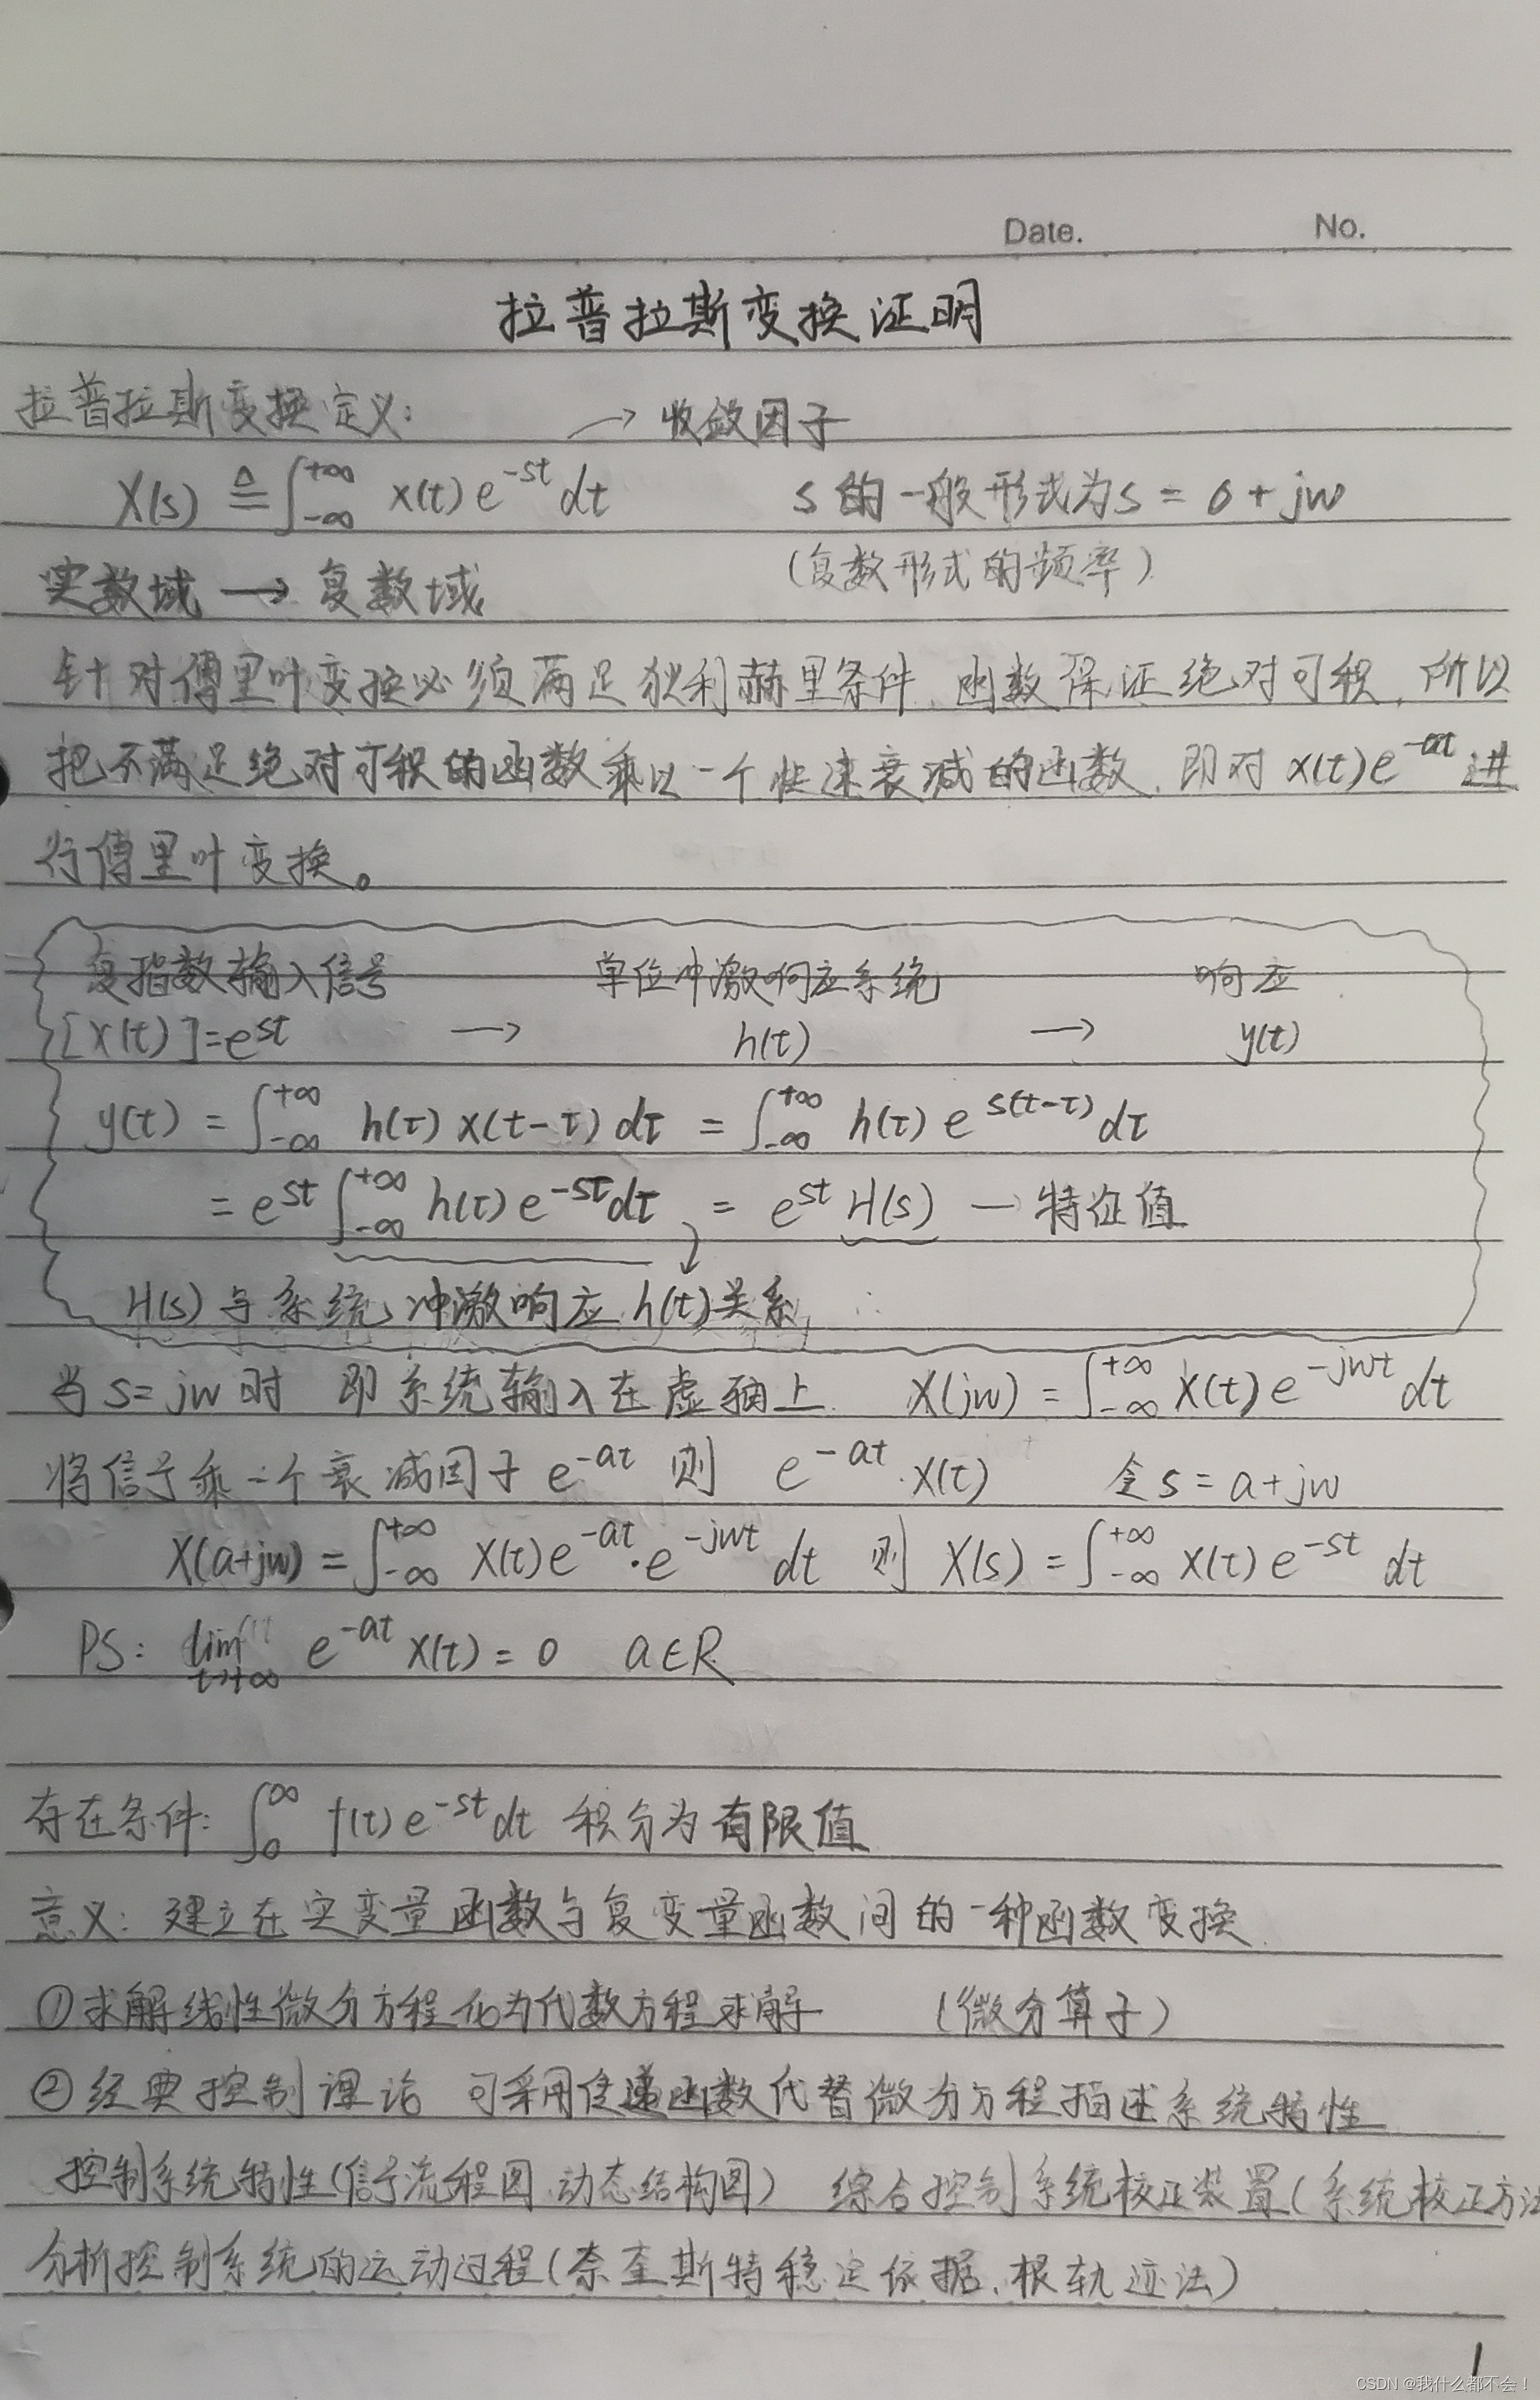 Date. No.
拉普拉斯变换证明
拉普拉斯变换定义: → 收敛因子
X(s) ≜ ∫_{-∞}^{+∞} x(t) e^{-st} dt s的一般形式为s = σ + jw
(复数形式的频率)
实数域 → 复数域
针对傅里叶变换必须满足狄利赫里条件,函数保证绝对可积,所以
把不满足绝对可积的函数乘以一个快速衰减的函数,即对 x(t)e^{-at} 进
行傅里叶变换。
复指数输入信号 单位冲激响应系统 响应
[x(t)]=e^{st} → h(t) → y(t)
y(t) = ∫_{-∞}^{+∞} h(τ) x(t-τ) dτ = ∫_{-∞}^{+∞} h(τ) e^{s(t-τ)} dτ
= e^{st} ∫_{-∞}^{+∞} h(τ) e^{-sτ} dτ = e^{st} H(s) — 特征值
H(s) 与系统冲激响应 h(t) 关系
当 s=jw 时 即系统输入在虚轴上. X(jw) = ∫_{-∞}^{+∞} x(t) e^{-jwt} dt
将信号乘一个衰减因子 e^{-at} 则 e^{-at}·x(t) 令 s = a+jw
X(a+jw) = ∫_{-∞}^{+∞} x(t) e^{-at}·e^{-jwt} dt 则 X(s) = ∫_{-∞}^{+∞} x(t) e^{-st} dt
PS: lim_{t→+∞} e^{-at} x(t) = 0 a∈R
存在条件: ∫_{0}^{∞} f(t) e^{-st} dt 积分为有限值
意义: 建立在实变量函数与复变量函数间的一种函数变换.
①求解线性微分方程化为代数方程求解 (微分算子)
②经典控制理论 可采用传递函数代替微分方程描述系统特性
控制系统特性(信号流程图、动态结构图) 综合控制系统校正装置(系统校正方法
分析控制系统的运动过程(奈奎斯特稳定依据、根轨迹法)
1
CSDN @我什么都不会!